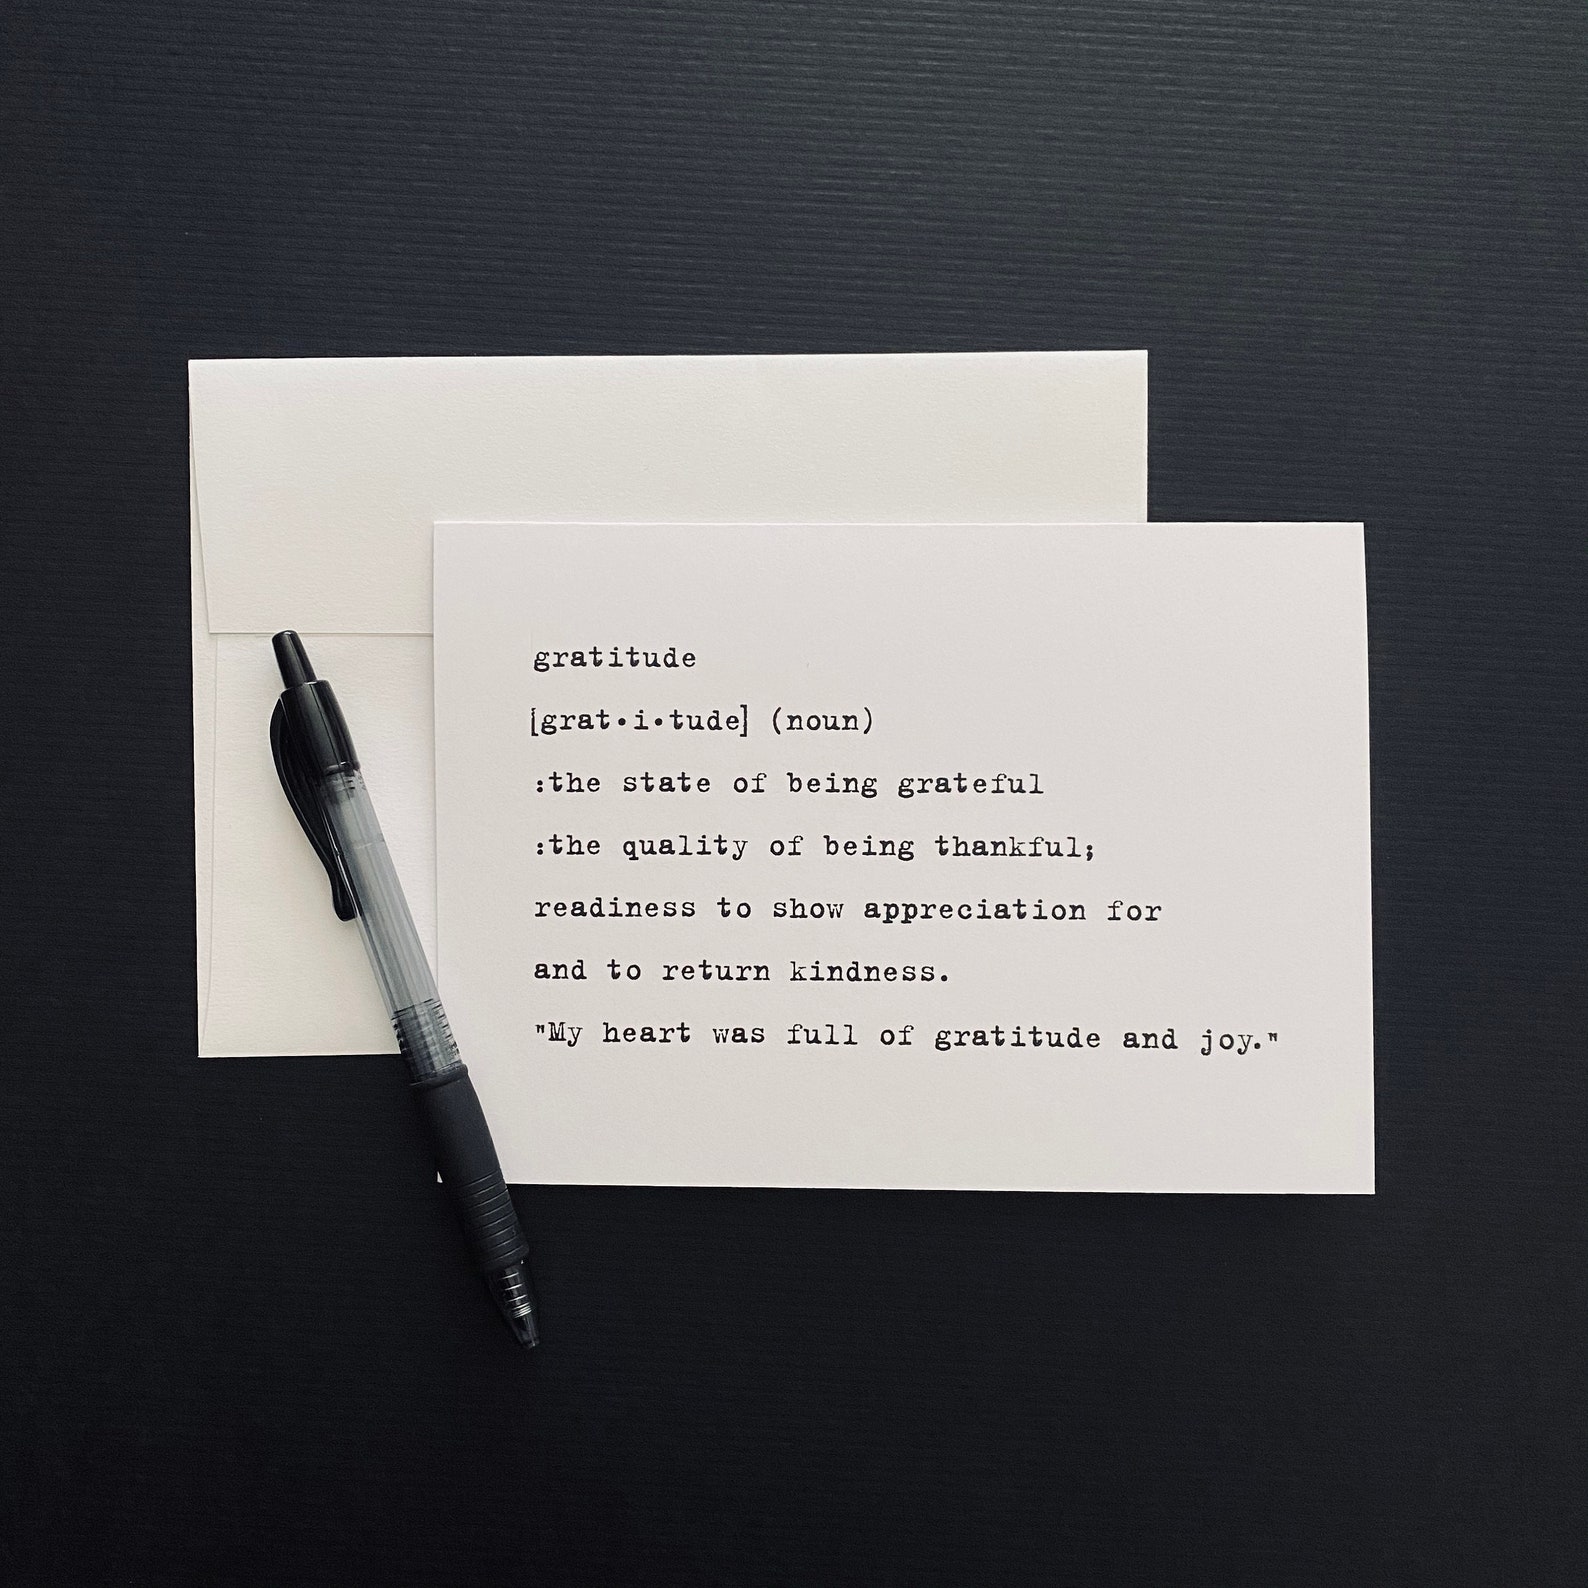 gratitude
[grat•i•tude] (noun)
:the state of being grateful
:the quality of being thankful;
readiness to show appreciation for
and to return kindness.
"My heart was full of gratitude and joy."